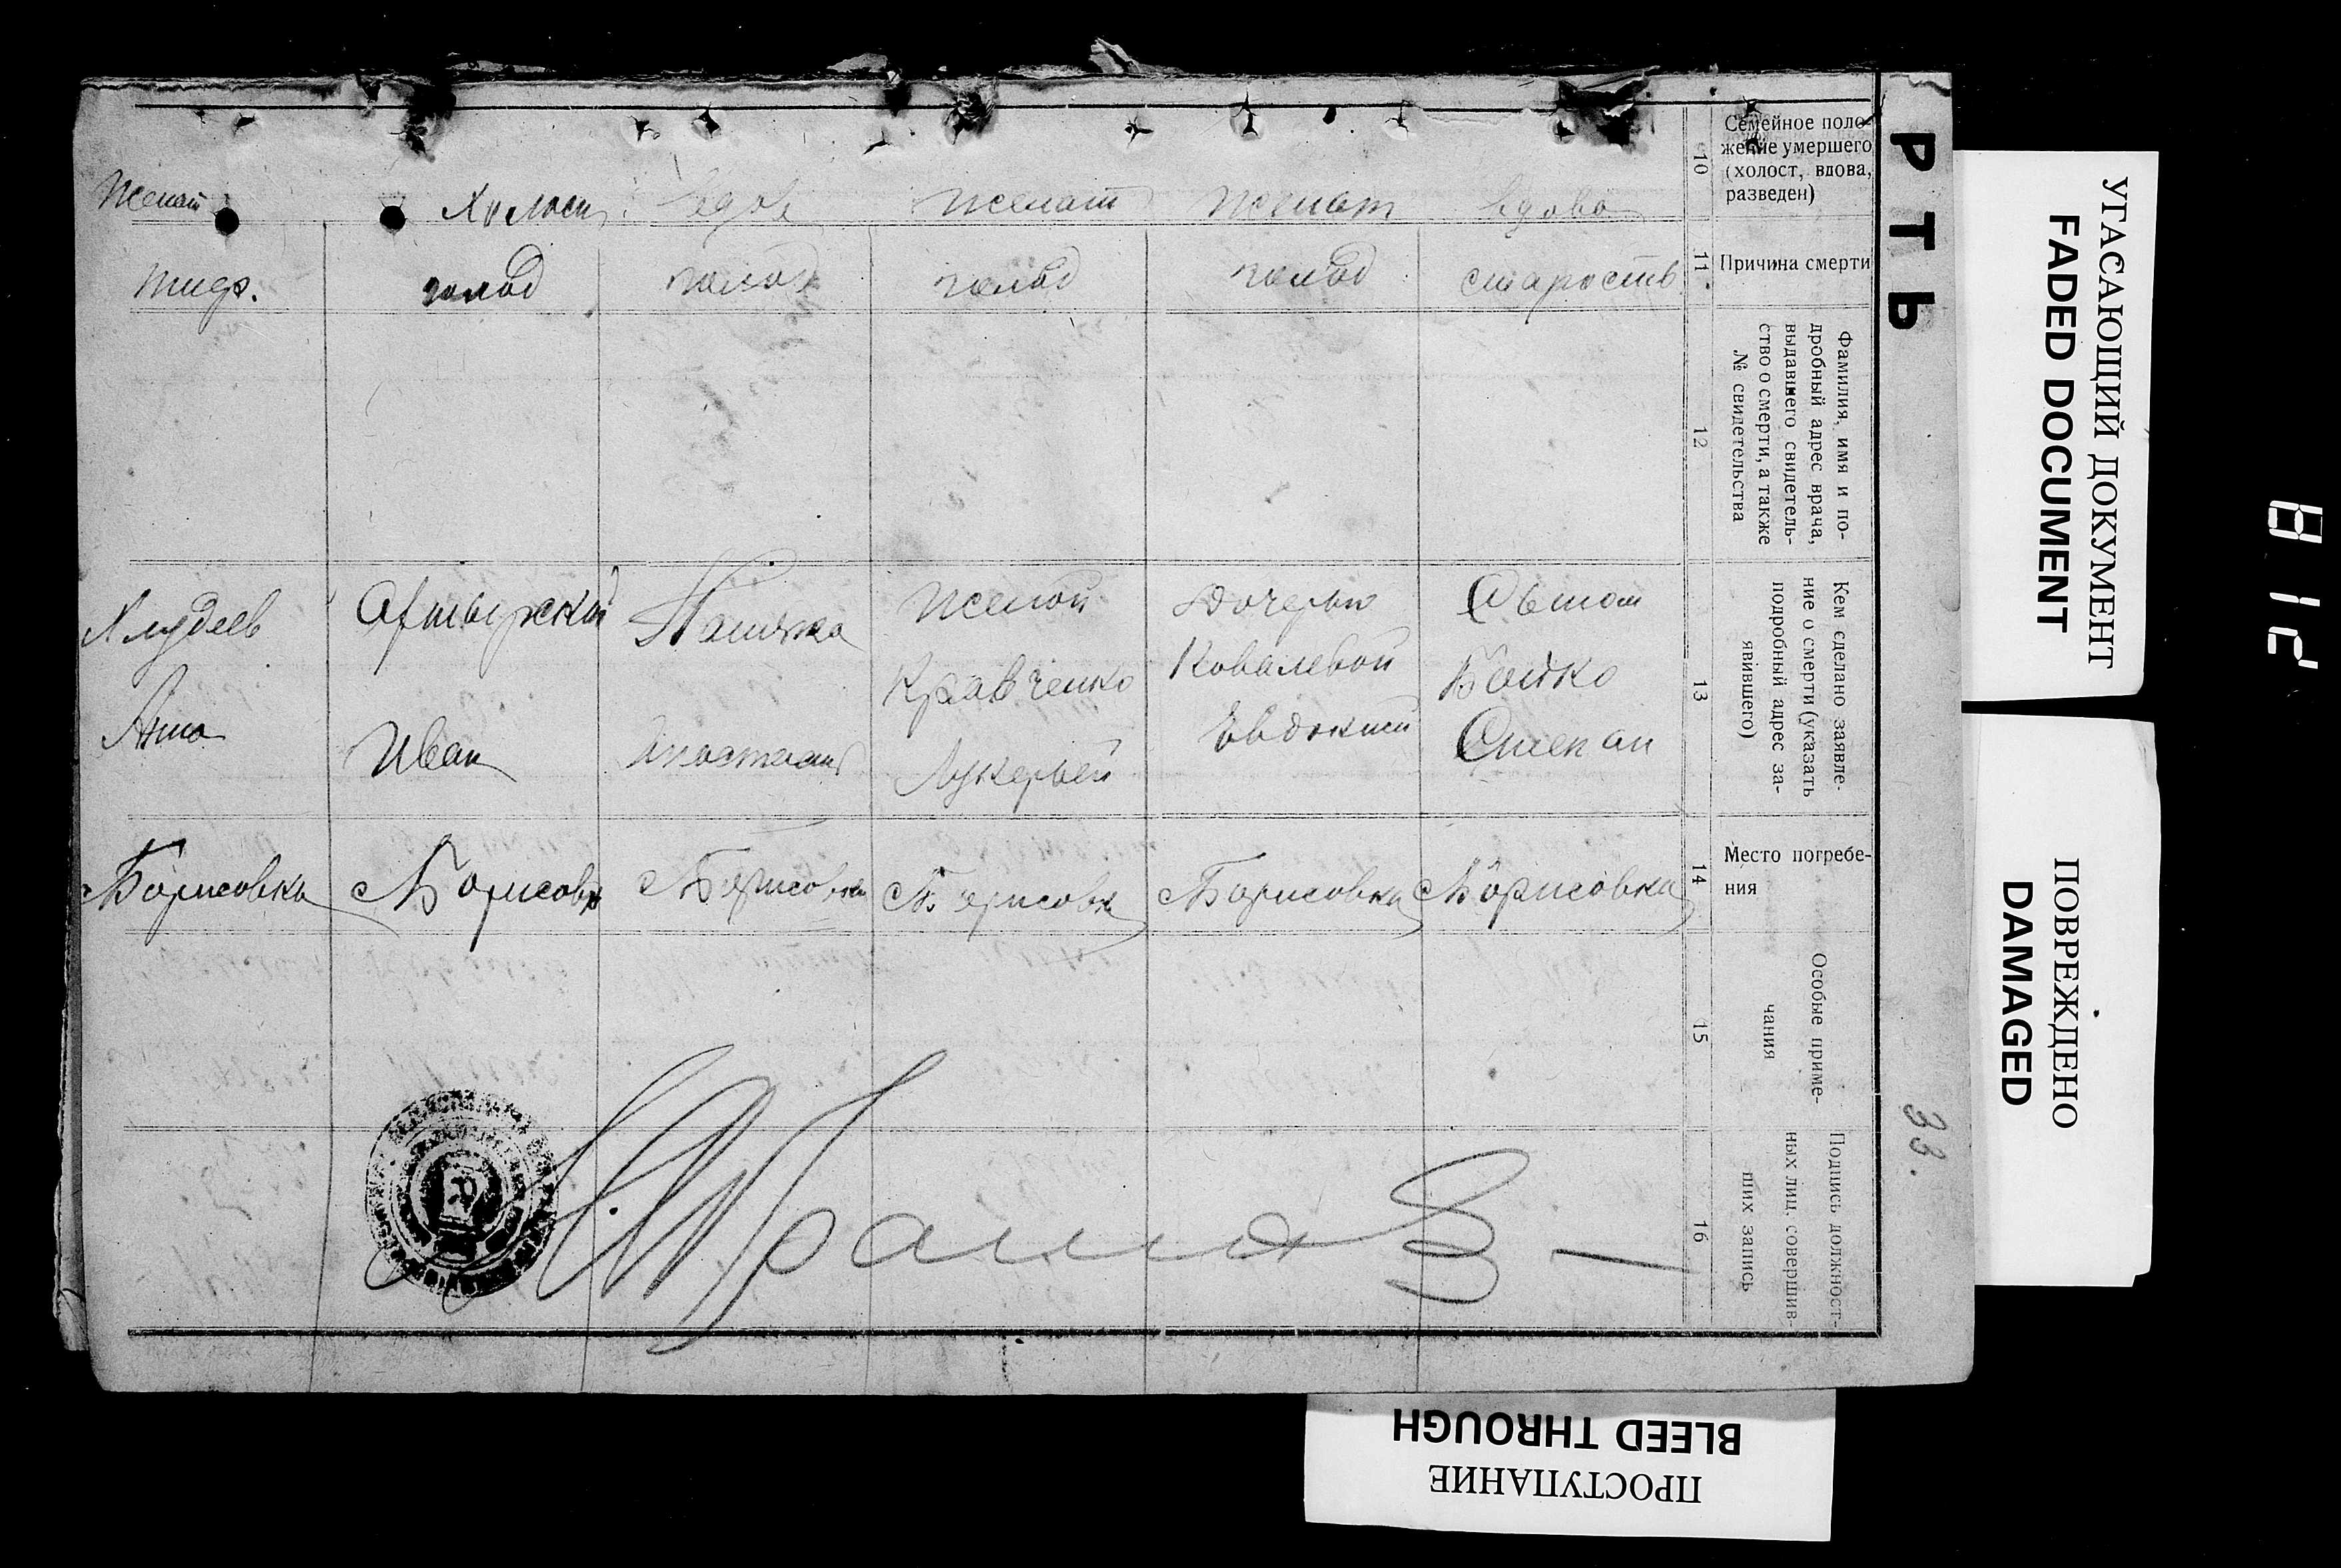 РТЬ
Семейное поло-
жение умершего
(холост, вдова,
разведен)
10
Женат
Холост
вдов
женат
женат
вдова
Причина смерти
11
тиф.
голод
голод
голод
голод
старость
Фамилия, имя и по-
дробный адрес врача,
выдавшего свидетель-
ство о смерти, а также
№ свидетельства
12
Кем сделано заявле-
ние о смерти (указать
подробный адрес за-
явившего)
13
Анна
Ахтырский
Иван
Женой
Кравченко
Лукерьей
Дочерью
Ковалевой
Евдокией
Бойко
Степан
Место погребе-
ния
14
Борисовка
Борисовк
Борисовка
Борисовка
Борисовка
Борисовка
Особые приме-
чания
15
Подпись должност-
ных лиц, совершив-
ших запись
16
33.
УГАСАЮЩИЙ ДОКУМЕНТ
FADED DOCUMENT
ПОВРЕЖДЕНО
DAMAGED
ПРОСТУПАНИЕ
BLEED THROUGH
812